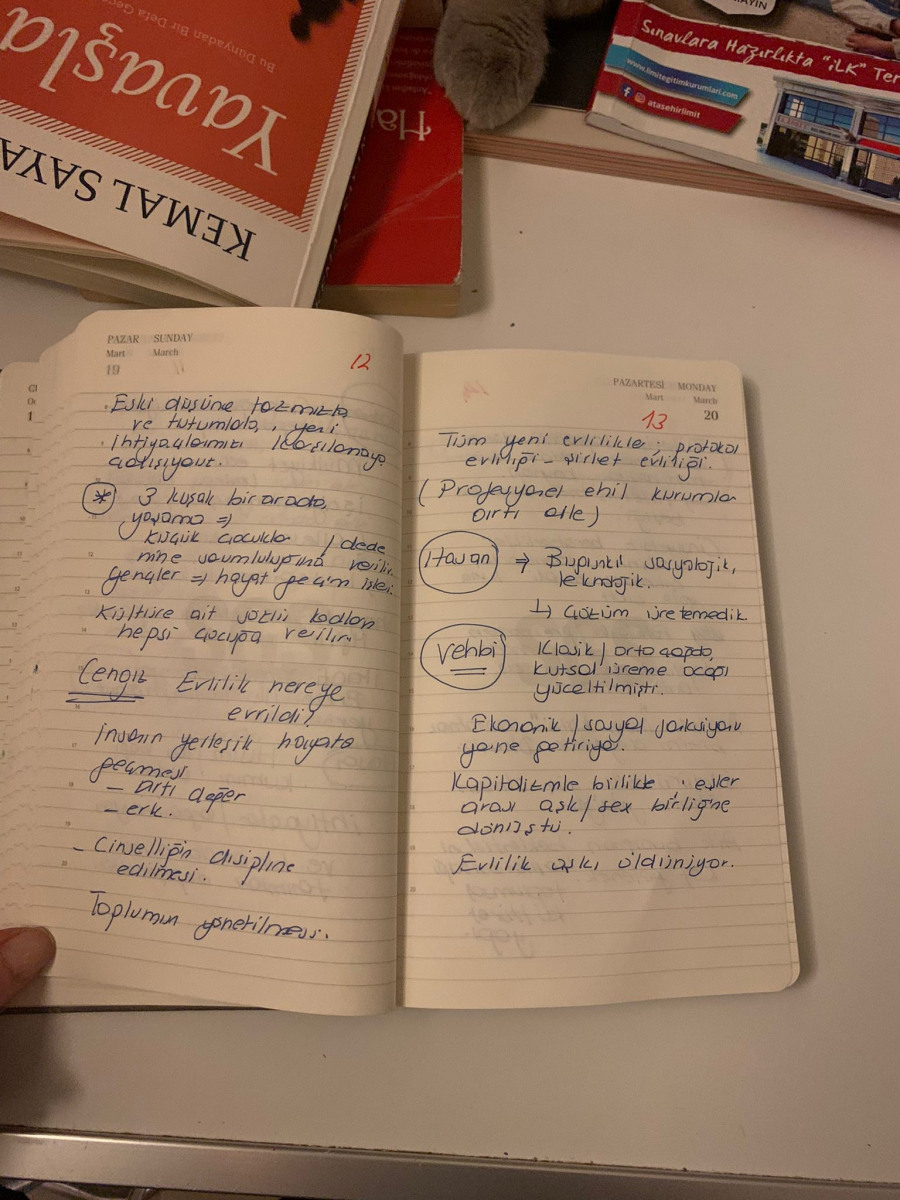 Bu Dünyadan Bir Defa Geç
Yavaşla
KEMAL SAYA
Ha
AYIN
Sınavlara Hazırlıkta "İLK" Ter
www.limitegitimkurumlari.com
atasehirlimit
PAZAR SUNDAY
Mart March
19
12
Eski düşünce tarzımızla
ve tutumlarla, yeni
ihtiyaçlarımızı karşılamaya
çalışıyoruz.
* 3 kuşak bir arada,
yaşama ⇒
küçük çocuklar / dede
nine sorumluluğuna verilir.
Gençler ⇒ hayat geçim işleri
Kültüre ait sözlü kodların
hepsi çocuğa verilir.
Cengiz Evlilik nereye
evrildi?
İnsanın yerleşik hayata
geçmesi
- Artı değer
- erk.
- Cinselliğin disipline
edilmesi.
Toplumun yönetilmesi.
PAZARTESİ MONDAY
Mart March
13 20
Tüm yeni evlilikler; protokol
evliliği - şirket evliliği.
(Profesyonel ehil kurumlar
artı aile)
Hasan ⇒ Bugünkü sosyolojik,
teknolojik.
↳ Çözüm üretemedik.
Vehbi Klasik / orta çağda,
kutsal üreme ocağı
yüceltilmişti.
Ekonomik / sosyal fonksiyonu
yerine getiriyor.
Kapitalizmle birlikte; eşler
arası aşk / sex birliğine
dönüştü.
Evlilik aşkı öldürüyor.